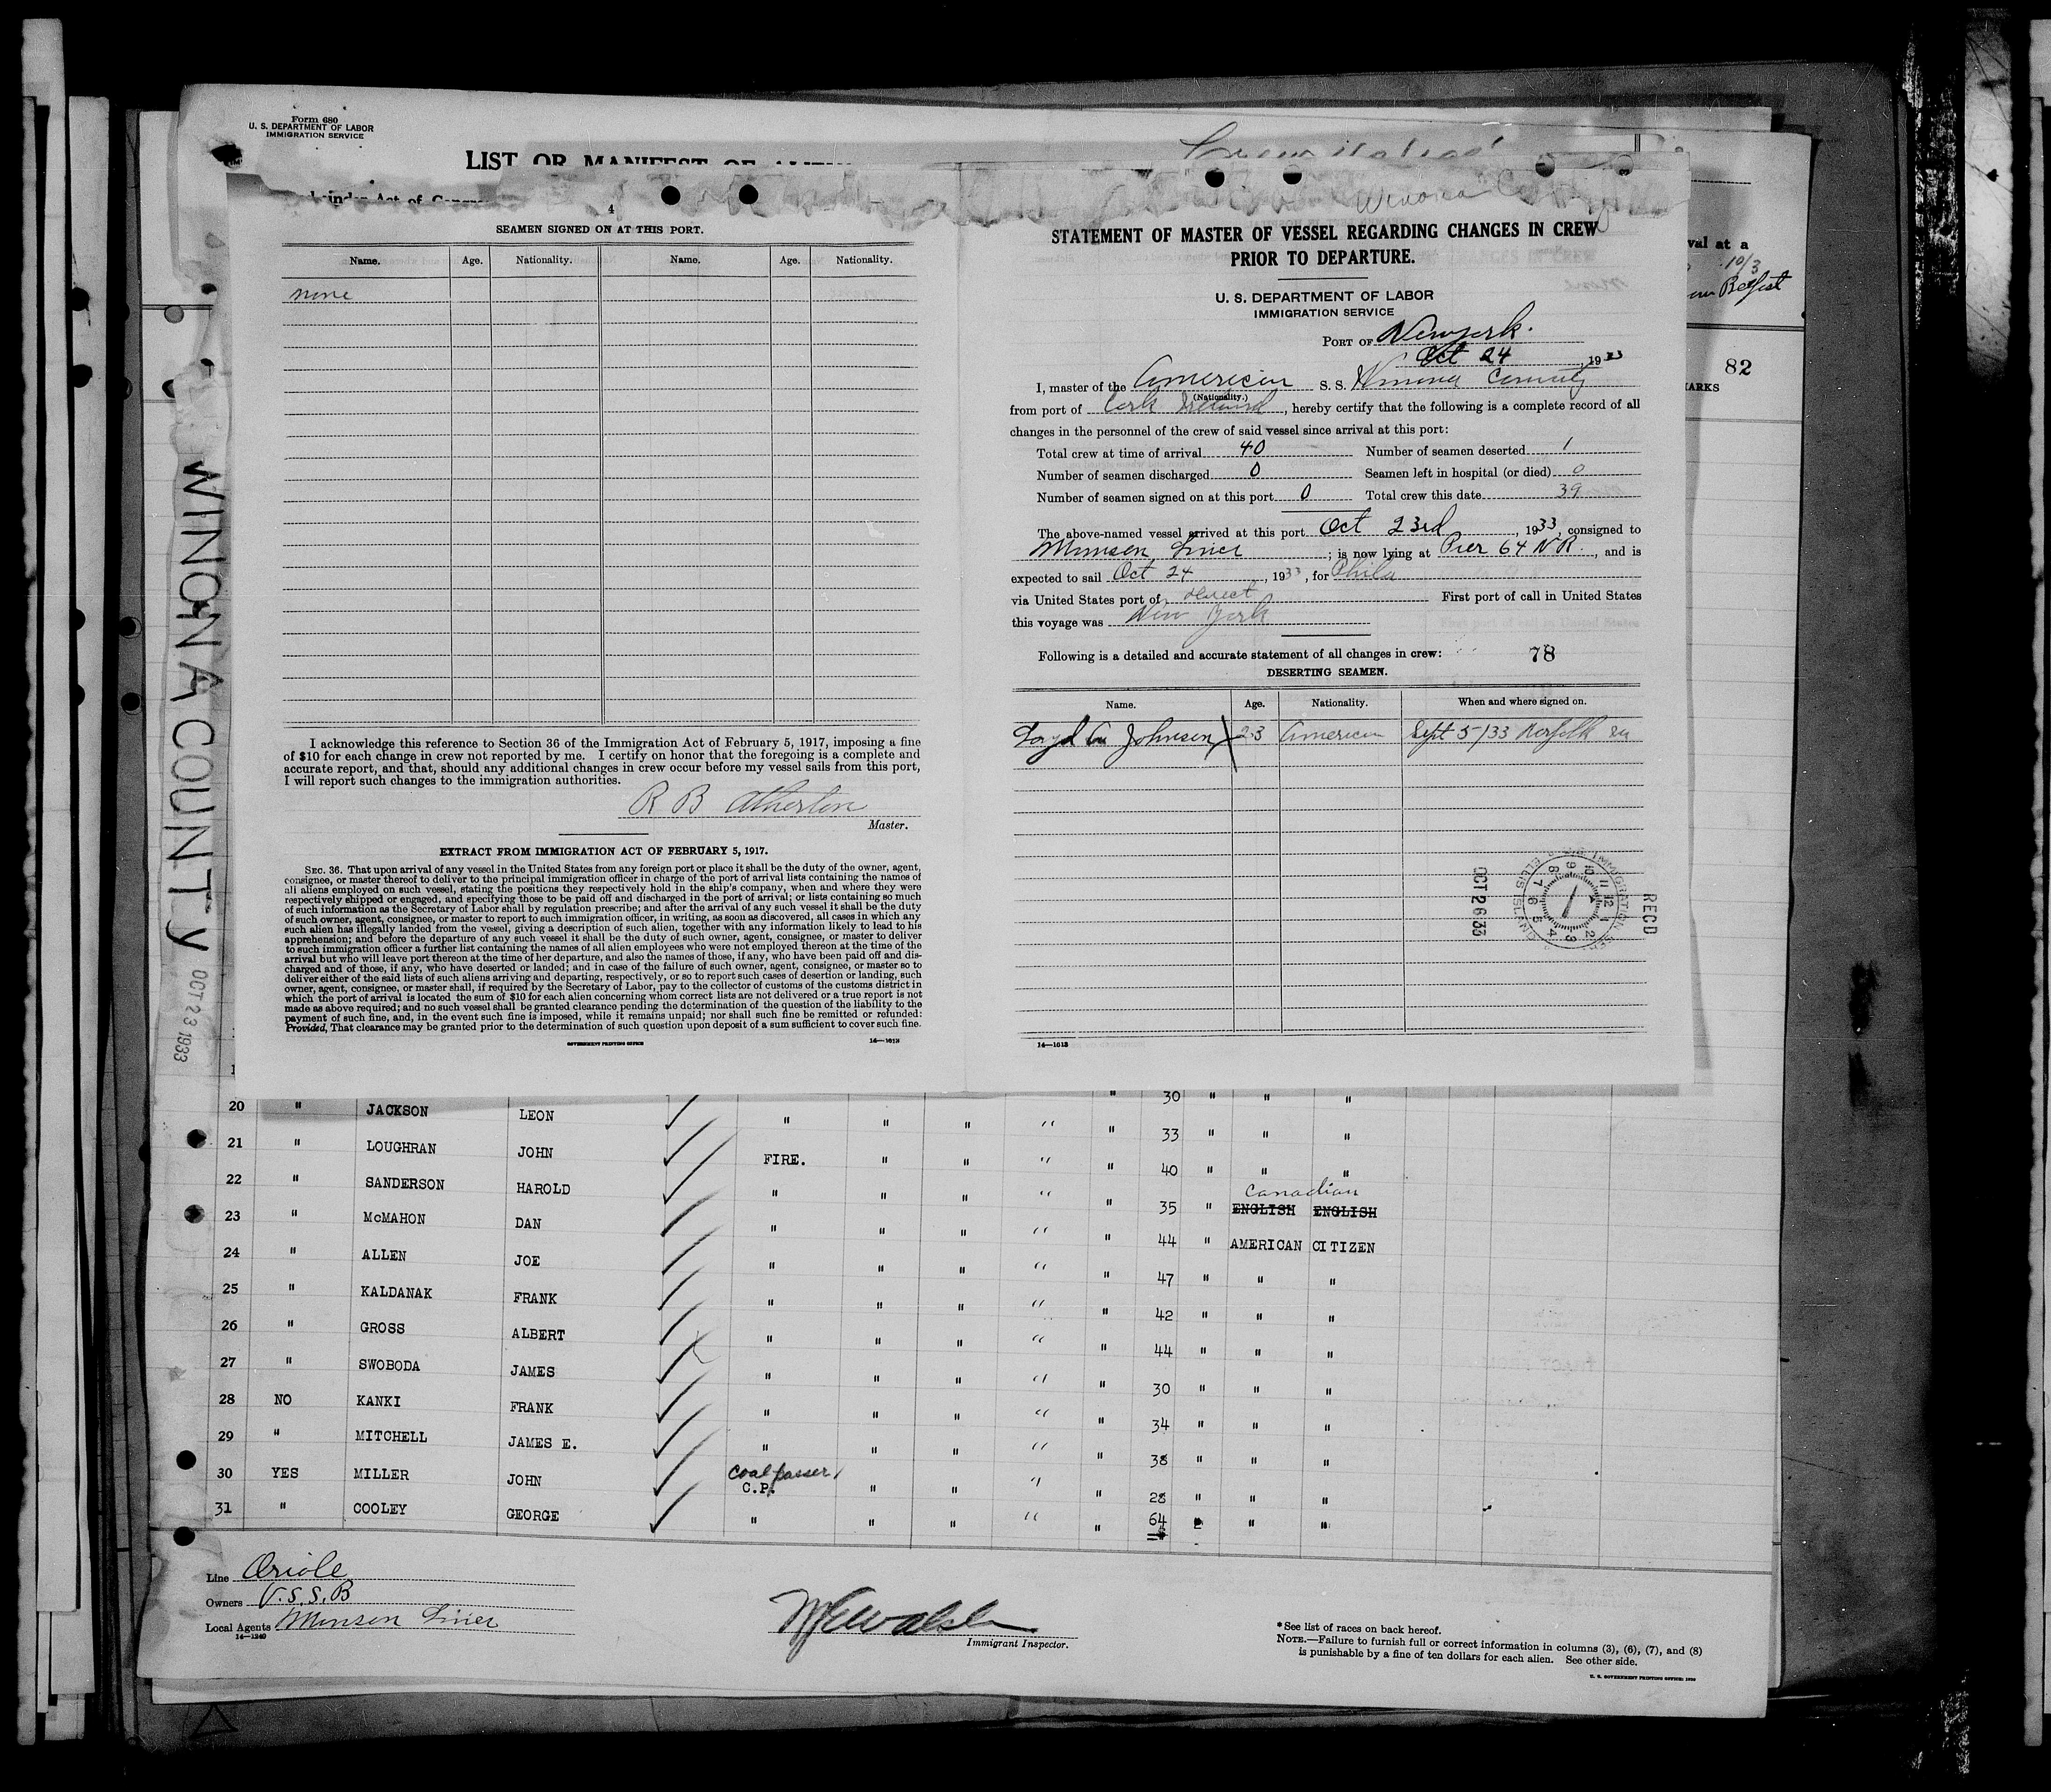 Form 680
U. S. DEPARTMENT OF LABOR
IMMIGRATION SERVICE
LIST OR MANIFEST OF
val at a
10/3
Belfast
82
ARKS
WINONA COUNTY OCT 23 1933
4
SEAMEN SIGNED ON AT THIS PORT.
Name. Age. Nationality. Name. Age. Nationality.
none
I acknowledge this reference to Section 36 of the Immigration Act of February 5, 1917, imposing a fine
of $10 for each change in crew not reported by me. I certify on honor that the foregoing is a complete and
accurate report, and that, should any additional changes in crew occur before my vessel sails from this port,
I will report such changes to the immigration authorities.
R B Atherton
Master.
EXTRACT FROM IMMIGRATION ACT OF FEBRUARY 5, 1917.
SEC. 36. That upon arrival of any vessel in the United States from any foreign port or place it shall be the duty of the owner, agent,
consignee, or master thereof to deliver to the principal immigration officer in charge of the port of arrival lists containing the names of
all aliens employed on such vessel, stating the positions they respectively hold in the ship's company, when and where they were
respectively shipped or engaged, and specifying those to be paid off and discharged in the port of arrival; or lists containing so much
of such information as the Secretary of Labor shall by regulation prescribe; and after the arrival of any such vessel it shall be the duty
of such owner, agent, consignee, or master to report to such immigration officer, in writing, as soon as discovered, all cases in which any
such alien has illegally landed from the vessel, giving a description of such alien, together with any information likely to lead to his
apprehension; and before the departure of any such vessel it shall be the duty of such owner, agent, consignee, or master to deliver
to such immigration officer a further list containing the names of all alien employees who were not employed thereon at the time of the
arrival but who will leave port thereon at the time of her departure, and also the names of those, if any, who have been paid off and dis-
charged and of those, if any, who have deserted or landed; and in case of the failure of such owner, agent, consignee, or master so to
deliver either of the said lists of such aliens arriving and departing, respectively, or so to report such cases of desertion or landing, such
owner, agent, consignee, or master shall, if required by the Secretary of Labor, pay to the collector of customs of the customs district in
which the port of arrival is located the sum of $10 for each alien concerning whom correct lists are not delivered or a true report is not
made as above required; and no such vessel shall be granted clearance pending the determination of the question of the liability to the
payment of such fine, and, in the event such fine is imposed, while it remains unpaid; nor shall such fine be remitted or refunded:
Provided, That clearance may be granted prior to the determination of such question upon deposit of a sum sufficient to cover such fine.
GOVERNMENT PRINTING OFFICE 14—1613
Winona Co
STATEMENT OF MASTER OF VESSEL REGARDING CHANGES IN CREW
PRIOR TO DEPARTURE.
U. S. DEPARTMENT OF LABOR
IMMIGRATION SERVICE
PORT OF New York.
Oct 24, 1933
I, master of the American S. S. Winona County
(Nationality.)
from port of Cork Ireland, hereby certify that the following is a complete record of all
changes in the personnel of the crew of said vessel since arrival at this port:
Total crew at time of arrival 40 Number of seamen deserted 1
Number of seamen discharged 0 Seamen left in hospital (or died) 0
Number of seamen signed on at this port 0 Total crew this date 39
The above-named vessel arrived at this port Oct 23rd, 1933, consigned to
Munson Line; is now lying at Pier 64 N R., and is
expected to sail Oct 24, 1933, for Phila
via United States port of direct First port of call in United States
this voyage was New York
Following is a detailed and accurate statement of all changes in crew: 78
DESERTING SEAMEN.
Name. Age. Nationality. When and where signed on.
Loyd Johnson 23 American Sept 5/33 Norfolk
RECD
OCT 26 33
IMMIGRATION SERVICE ELLIS ISLAND
14—1613
30 " " "
20 " JACKSON LEON " " " " " 33 " " "
21 " LOUGHRAN JOHN FIRE. " " " " 40 " " "
22 " SANDERSON HAROLD " " " " " 35 " Canadian ENGLISH ENGLISH
23 " McMAHON DAN " " " " " 44 " AMERICAN CITIZEN
24 " ALLEN JOE " " " " " 47 " " "
25 " KALDANAK FRANK " " " " " 42 " " "
26 " GROSS ALBERT " " " " " 44 " " "
27 " SWOBODA JAMES " " " " " 30 " " "
28 NO KANKI FRANK " " " " " 34 " " "
29 " MITCHELL JAMES E. " " " " " 38 " " "
30 YES MILLER JOHN Coal passer C.P. " " " " 28 " " "
31 " COOLEY GEORGE " " " " " 64 " " "
Line Oriole
Owners U.S.S.B
Local Agents Munson Line
14—1240
Immigrant Inspector.
* See list of races on back hereof.
NOTE.—Failure to furnish full or correct information in columns (3), (6), (7), and (8)
is punishable by a fine of ten dollars for each alien. See other side.
U. S. GOVERNMENT PRINTING OFFICE: 1930